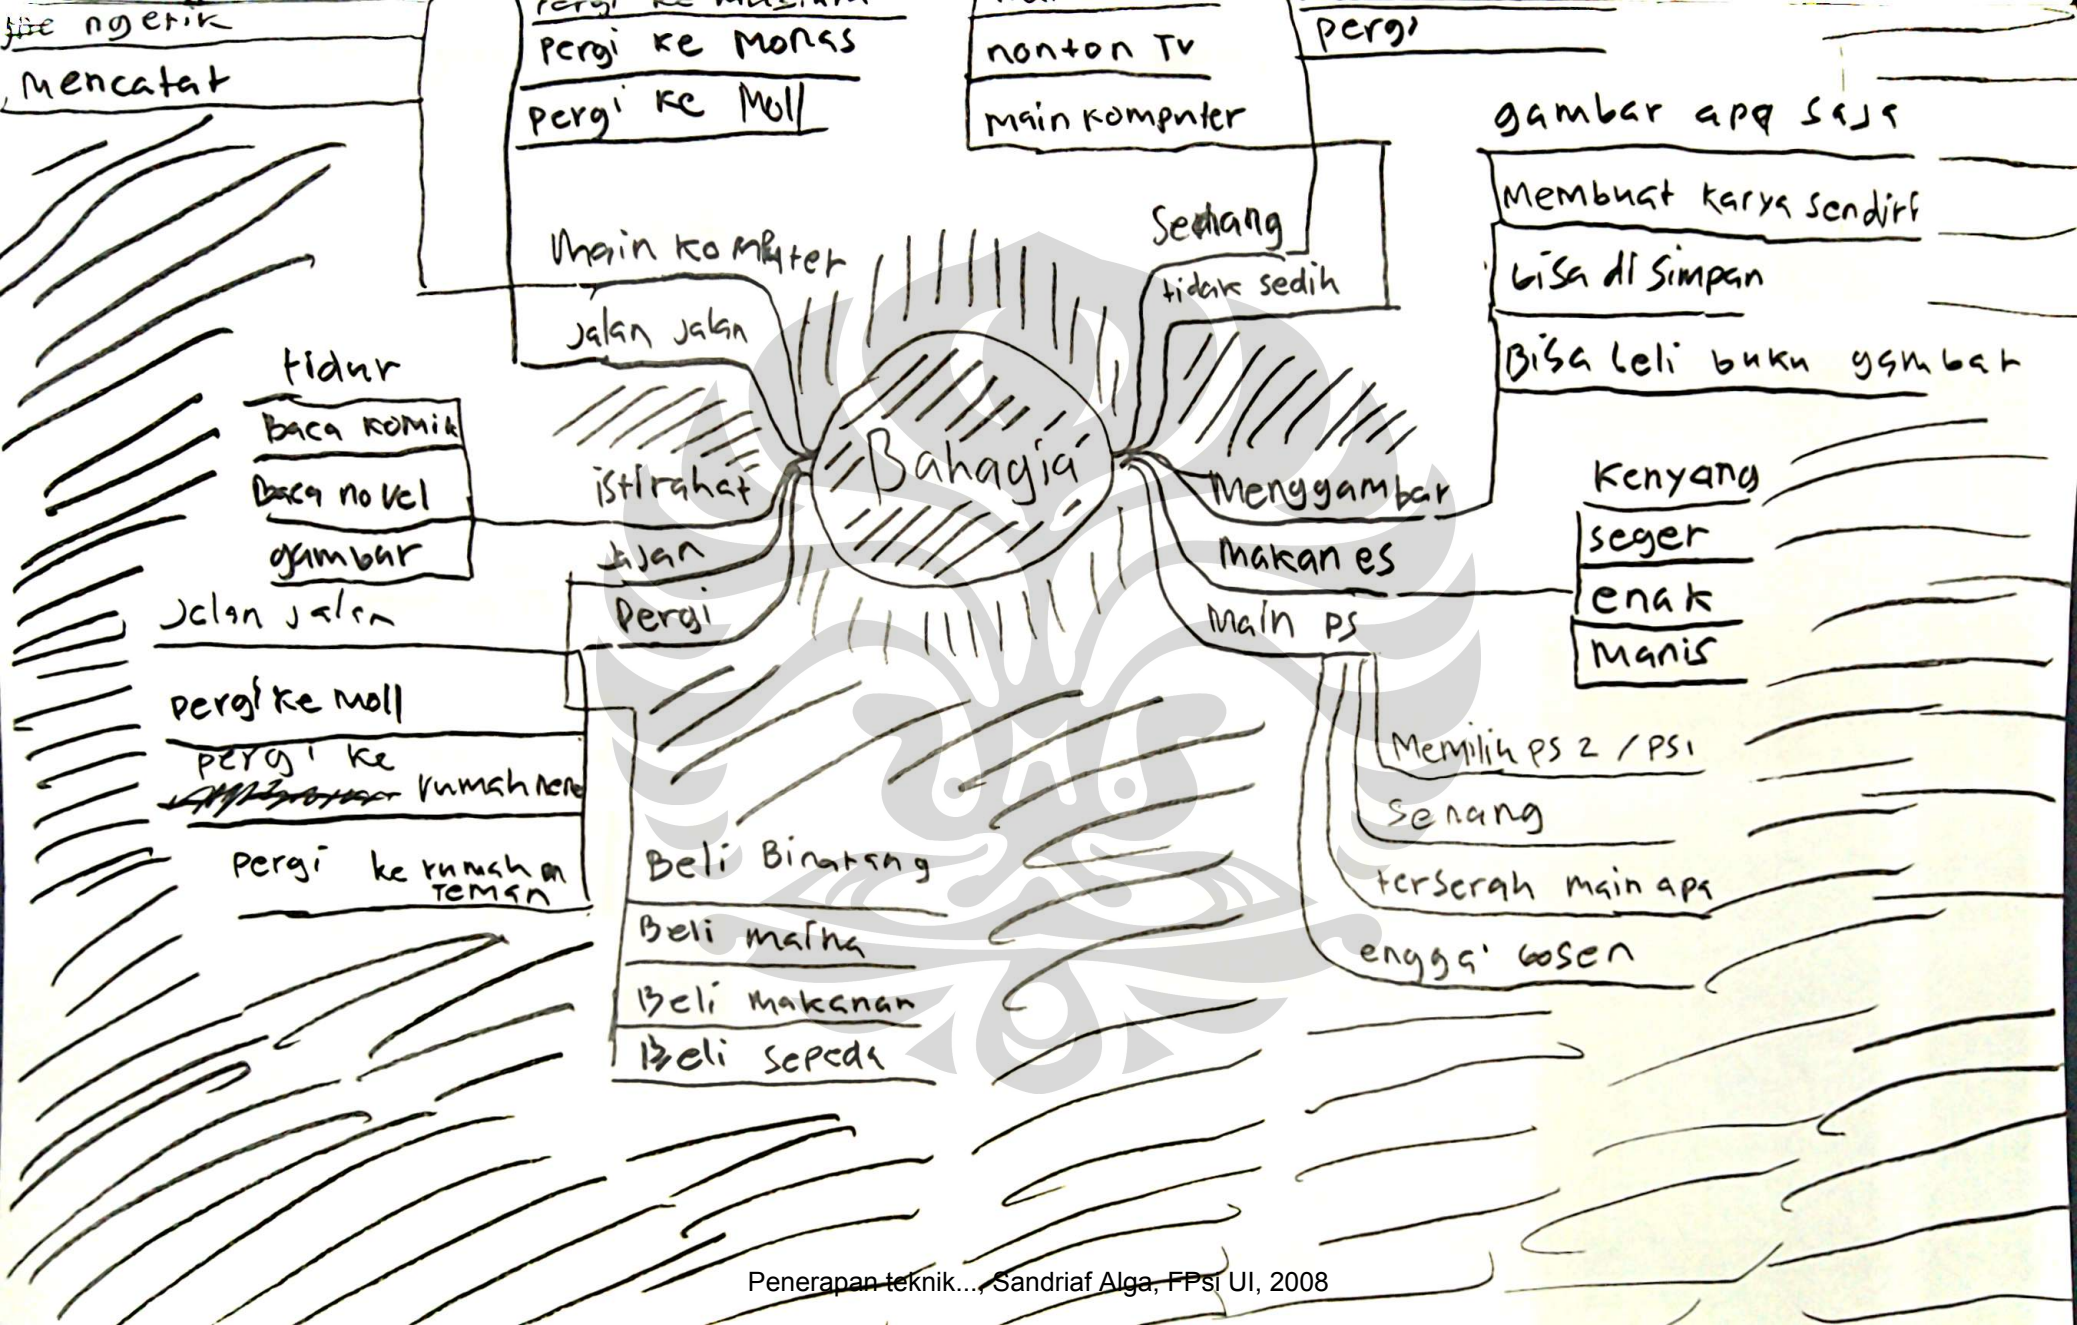 ngetik
mencatat
pergi ke Monas
pergi ke Moll
nonton TV
main komputer
pergi
gambar apa saja
Membuat karya sendiri
bisa di simpan
Bisa beli buku gambar
Senang
tidak sedih
main komputer
jalan jalan
tidur
Baca komik
Baca novel
gambar
istirahat
jajan
pergi
Bahagia
Menggambar
makan es
main ps
kenyang
seger
enak
manis
jalan jalan
pergi ke Moll
pergi ke
rumah
pergi ke rumah
Teman
Beli Binatang
Beli
Beli makanan
Beli sepeda
Memilih ps 2 / ps1
Senang
terserah main apa
engga' bosen
Penerapan teknik..., Sandriaf Alga, FPsi UI, 2008